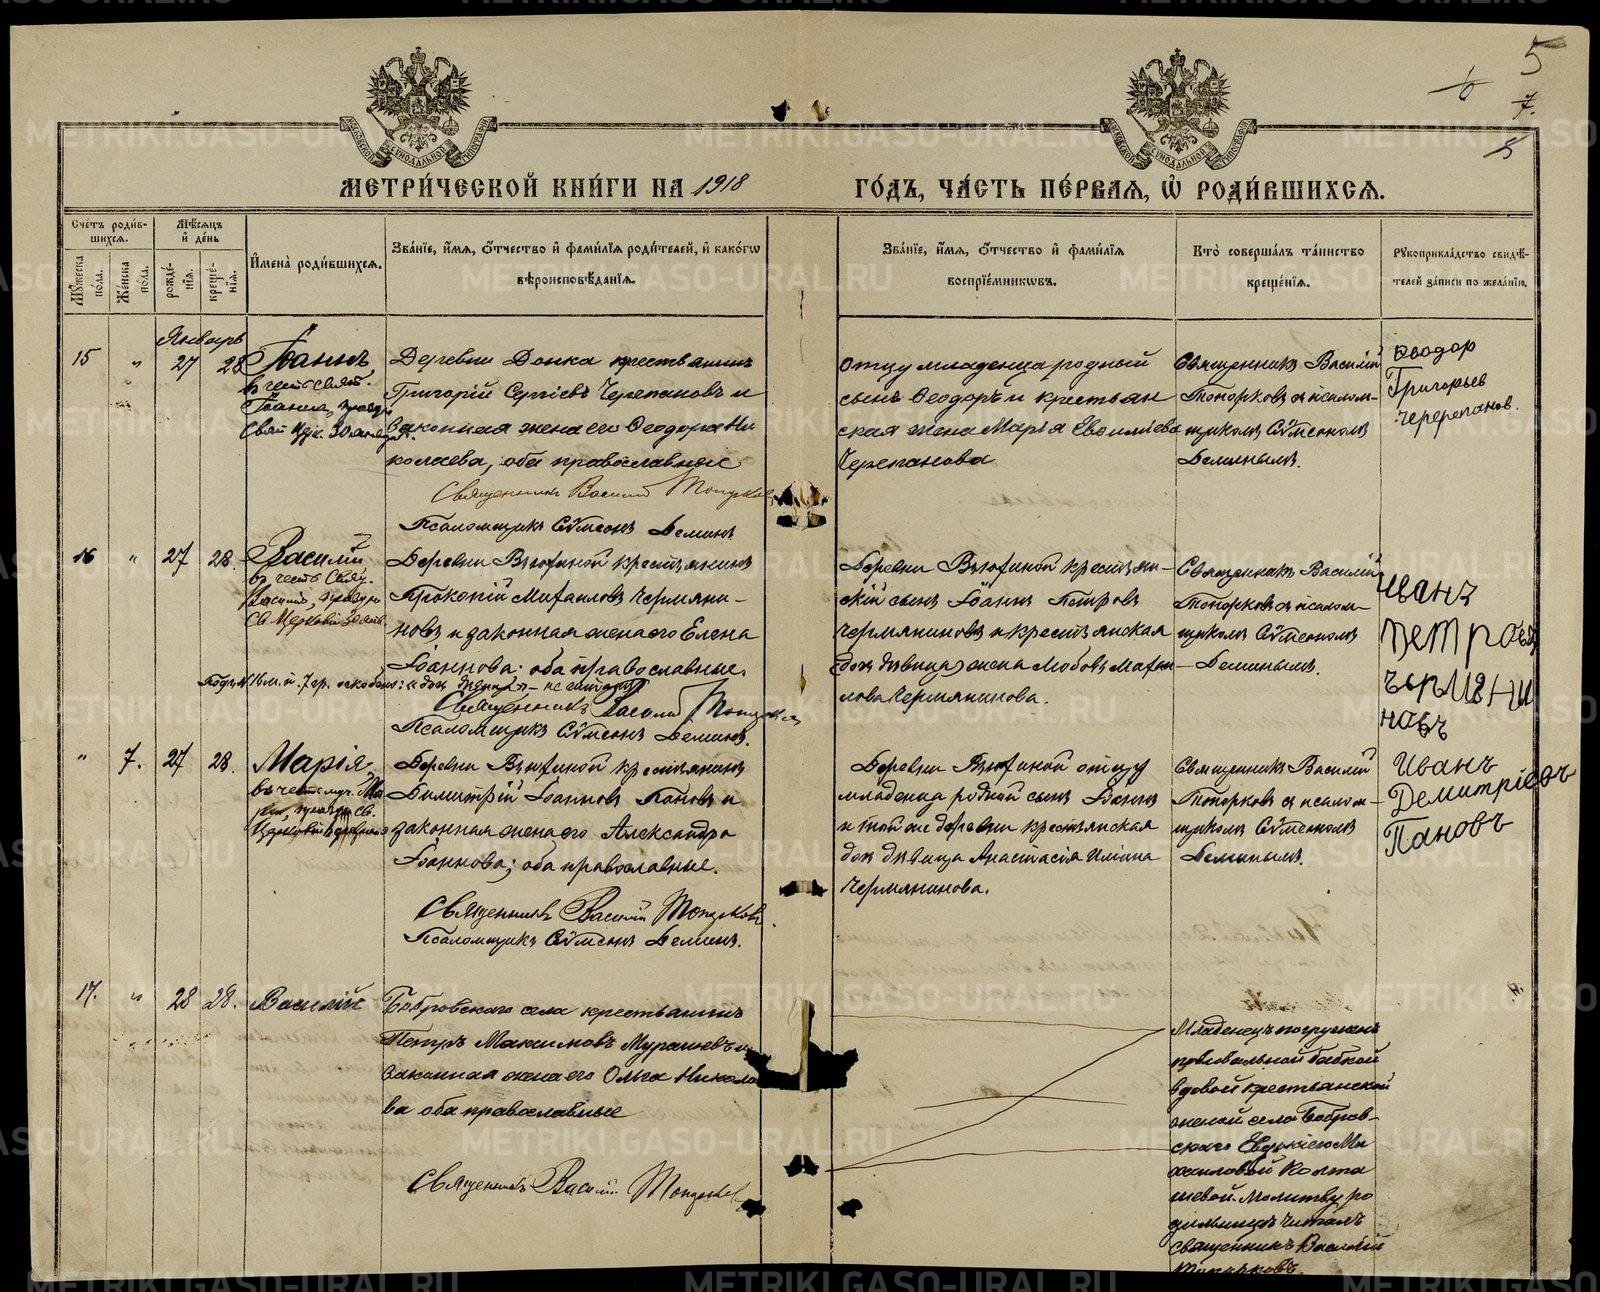 5
7.
5
МЕТРИ́ЧЕСКОЙ КНИ́ГИ НА 1918
ГО́ДЪ, ЧА́СТЬ ПЕ́РВАЯ, Ѡ РОДИ́ВШИХСЯ.
Сче́тъ роди́в-
шихся.
Мѣ́сяцъ
и де́нь
Мꙋ́жеска
по́ла.
Же́нска
по́ла.
рожде́-
нїя.
креще́-
нїя.
И҆мена̀ роди́вшихся.
Зва́нїе, и҆́мя, о҆́тчество и҆ фами́лїя роди́телей, и҆ како́гѡ
вѣроисповѣ́данїя.
Зва́нїе, и҆́мя, о҆́тчество и҆ фами́лїя
воспрїе́мникѡвъ.
Кто̀ соверша́лъ та́инство
креще́нїя.
Рꙋкоприкла́дство свидѣ́-
телей за́писи по жела́нїю.
Январь
15 " 27 28
Іоаннъ,
въ честь свят.
Іоанна, праздн.
Деревни Донка крестьянинъ
Григорій Сергіевъ Черепановъ и
законная жена его Ѳеодора Ни
колаева, оба православные
Священникъ Василій Топорковъ
Псаломщикъ Сѵмеонъ Деминъ
Отцу младенца родный
сынъ Ѳеодоръ и крестьян
ская жена Марія
Черепанова
Священникъ Василій
Топорковъ съ псалом-
щикомъ Сѵмеономъ
Деминымъ.
Ѳеодор
Григорьев
Черерепанов.
16 " 27 28.
Василій
въ честь Свящ.
Василія, праздн.
Св. Церковію 30 янв.
Деревни Вьюхиной крестьянинъ
Прокопій Михаиловъ Чермяни-
новъ и законная жена его Елена
Іоаннова: оба православные.
Священникъ Василій Топорковъ
Псаломщикъ Сѵмеонъ Деминъ.
Деревни Вьюхиной крестьян-
скій сынъ Іоаннъ Петровъ
Чермяниновъ и крестьянская
(дочь дѣвица) жена Любовь Михаи-
лова Чермянинова.
Священникъ Василій
Топорковъ съ псалом-
щикомъ Сѵмеономъ
Деминымъ.
Иванъ
Петровъ
Чърмяни
новъ
" 7. 27 28.
Марія
въ честь муч. Ма
ріи, праздн. Св.
Деревни Вьюхиной крестьянинъ
Димитрій Іоанновъ Пановъ и
законная жена его Александра
Іоаннова; оба православные.
Священникъ Василій Топорковъ
Псаломщикъ Сѵмеонъ Деминъ.
Деревни Вьюхиной отцу
младенца родной сынъ Іоаннъ
и той же деревни крестьянская
дочь дѣвица Анастасія Иліина
Чермянинова.
Священникъ Василій
Топорковъ съ псалом-
щикомъ Сѵмеономъ
Деминымъ.
Иванъ
Демитріевъ
Пановъ
17. " 28 28.
Василій
Бобровскаго села крестьянинъ
Петръ Максимовъ Мурашевъ и
законная жена его Ольга Никола
ва оба православные
Священникъ Василій Топорковъ
Младенецъ погруженъ
повивальной бабкой
вдовой крестьянской
женой села Бобров-
скаго Евдокіею Ми
хаиловой Колта
шевой. Молитву ро
дильницѣ читалъ
священникъ Василій
Топорковъ.
METRIKI.GASO-URAL.RU